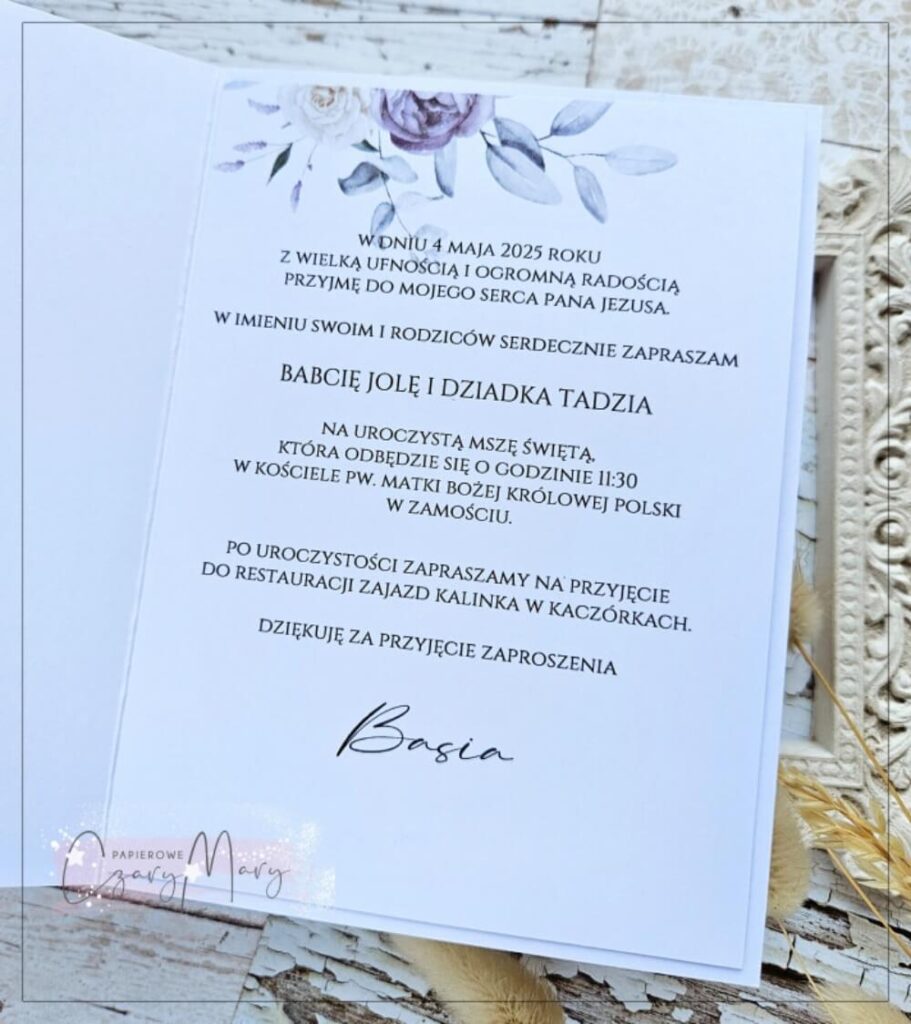 W DNIU 4 MAJA 2025 ROKU
Z WIELKĄ UFNOŚCIĄ I OGROMNĄ RADOŚCIĄ
PRZYJMĘ DO MOJEGO SERCA PANA JEZUSA.
W IMIENIU SWOIM I RODZICÓW SERDECZNIE ZAPRASZAM
BABCIĘ JOLĘ I DZIADKA TADZIA
NA UROCZYSTĄ MSZĘ ŚWIĘTĄ,
KTÓRA ODBĘDZIE SIĘ O GODZINIE 11:30
W KOŚCIELE PW. MATKI BOŻEJ KRÓLOWEJ POLSKI
W ZAMOŚCIU.
PO UROCZYSTOŚCI ZAPRASZAMY NA PRZYJĘCIE
DO RESTAURACJI ZAJAZD KALINKA W KACZÓRKACH.
DZIĘKUJĘ ZA PRZYJĘCIE ZAPROSZENIA
Basia
PAPIEROWE
Czary Mary